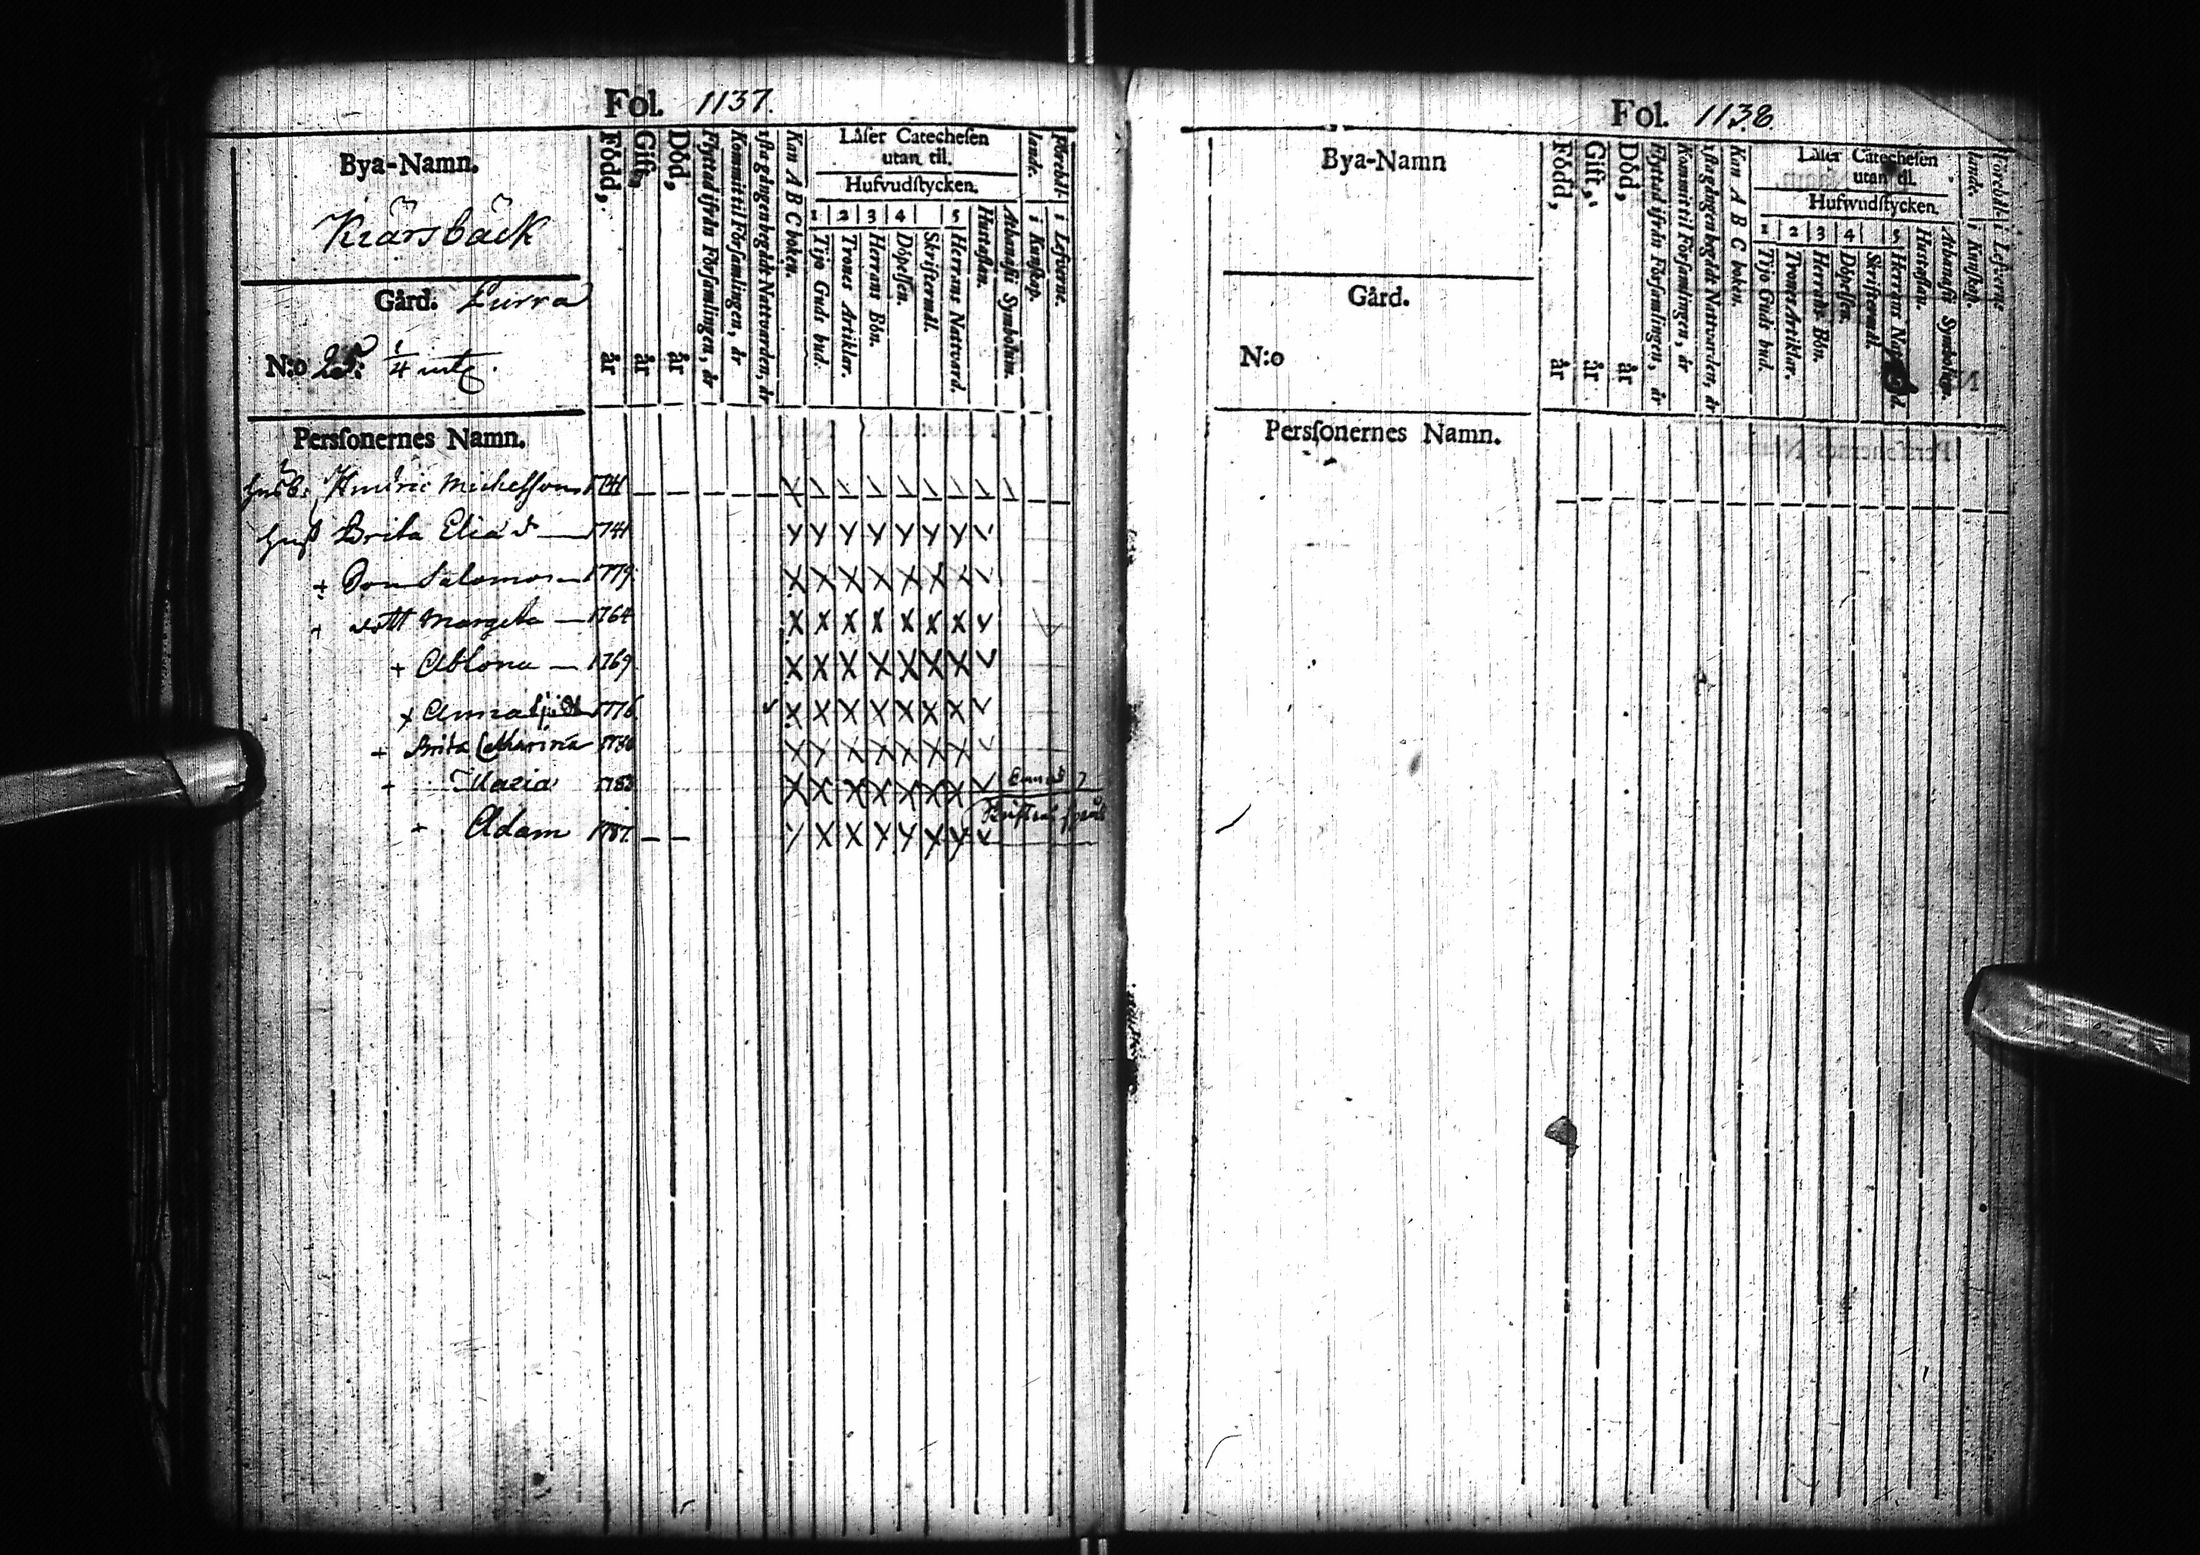 Fol. 1137.
Bya-Namn.
Kiärsbäck
Gård. Lurra
N:o 25. 1/4 mtl.
Född, år
Gift, år
Död, år
Flyttad ifrån Församlingen, år
Kommit til Församlingen, år
1sta gången begådt Nattvarden, år
Kan A B C boken.
Låser Catechesen
utan til.
Hufvudstycken.
1 2 3 4 5
Tijo Guds bud.
Trones Artiklar.
Herrans Bön.
Döpelsen.
Skriftermål.
Herrans Nattvard.
Hustaflan.
Athanasii Symbolum.
Förehållande.
i Kunskap.
i Lefverne.
Personernes Namn.
Husb: Hindric Michelsson 1741
Hust Brita Eliad 1741
+ Son Salomon 1779
+ dott Margeta 1764
+ Ablona 1769
+ Anna 1776
+ Brita Catharina 1780
Maria 1783
Adam 1787
Fol. 1138.
Bya-Namn
Gård.
N:o
Född, år
Gift, år
Död, år
Flyttad ifrån Församlingen, år
Kommit til Församlingen, år
1sta gången begådt Nattvarden, år
Kan A B C boken.
Låser Catechesen
utan til.
Hufwudstycken.
1 2 3 4 5
Tijo Guds bud.
Trones Artiklar.
Herrans Bön.
Döpelsen.
Skriftermål.
Herrans
Hustaflan.
Athanasii Symbolum.
Förehållande.
i Kunskap.
i Lefverne
Personernes Namn.